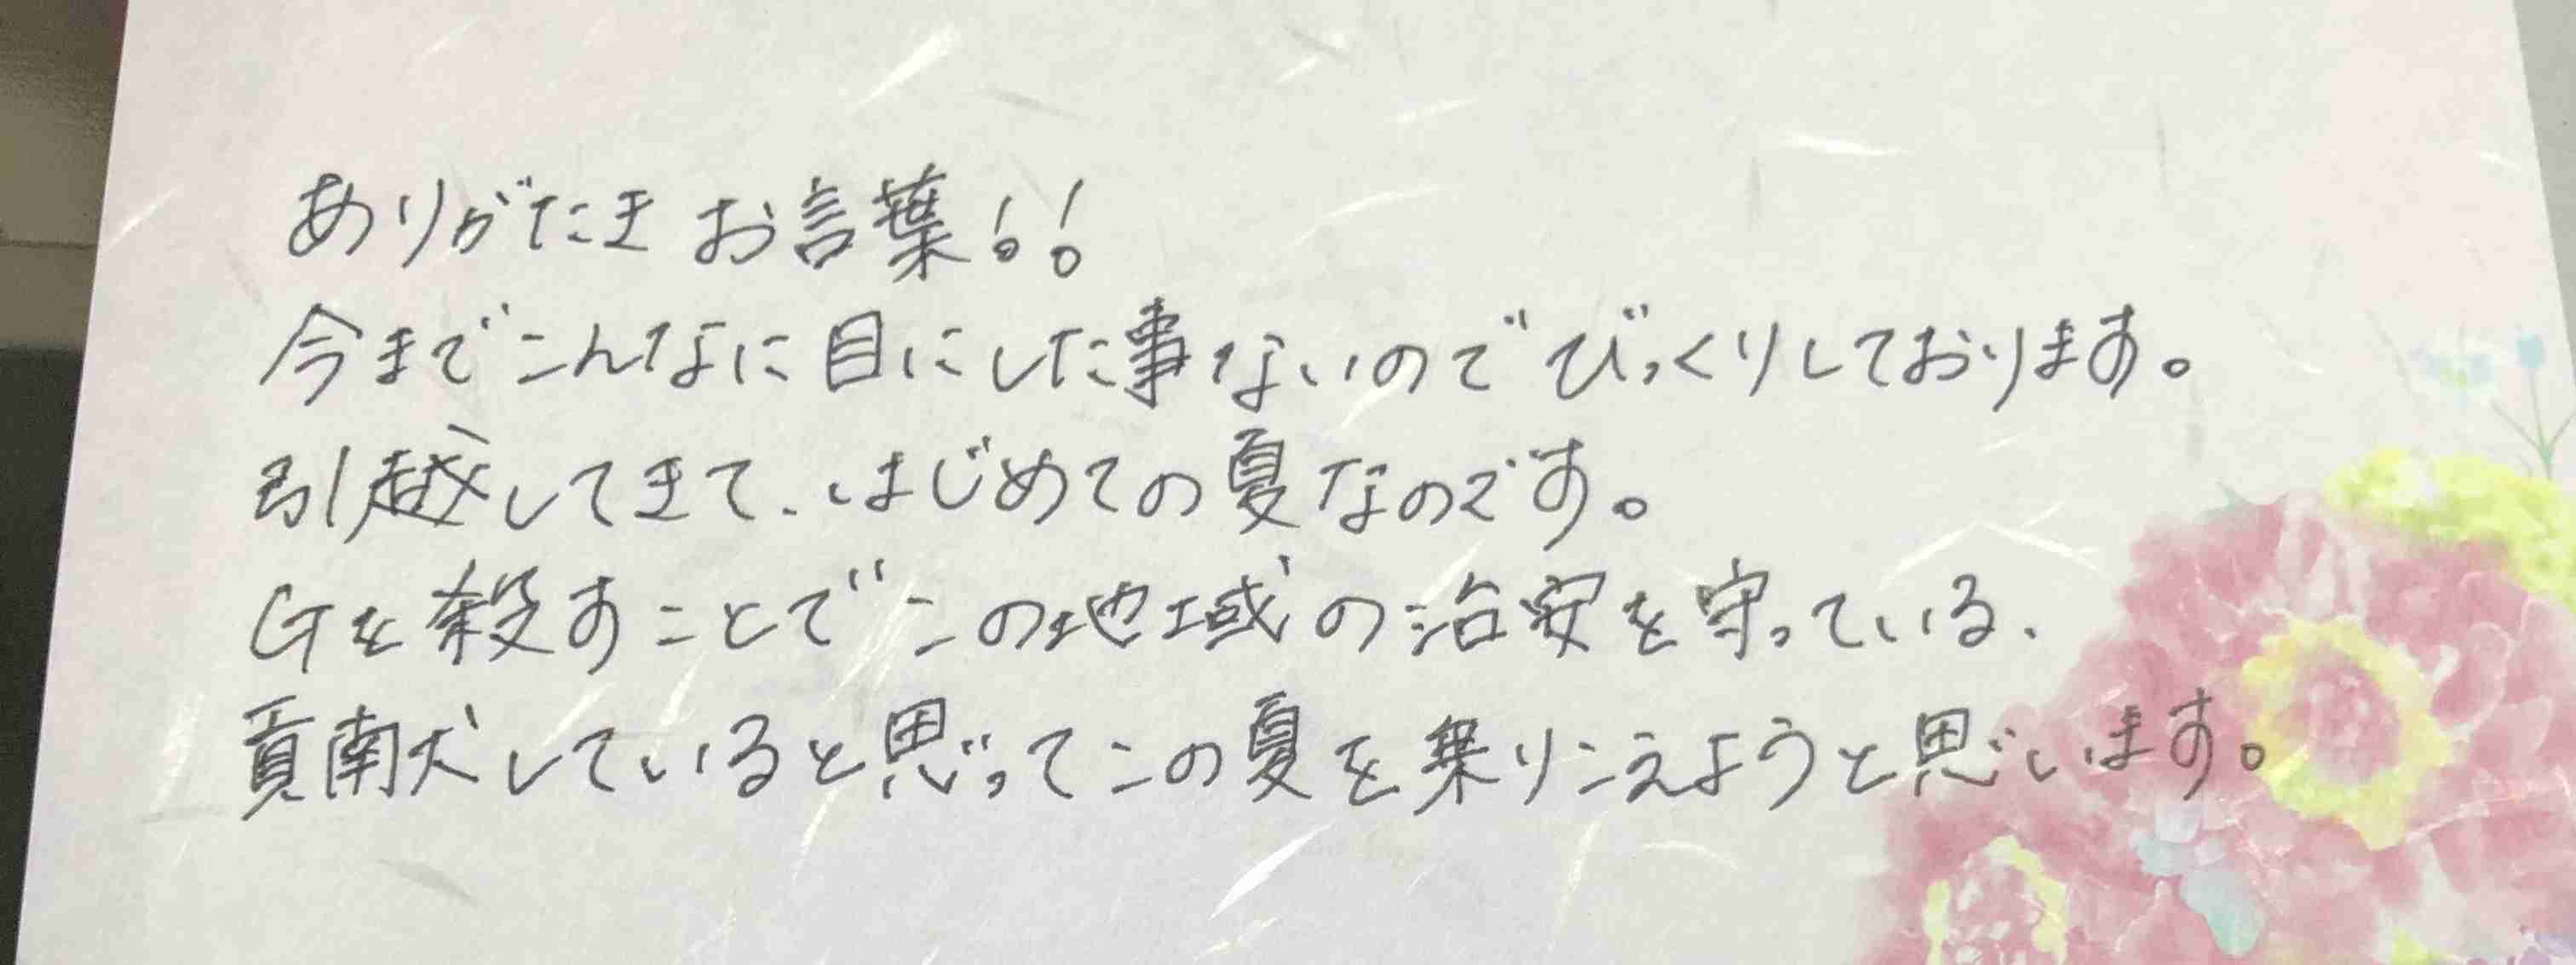 ありがたきお言葉!!
今までこんなに目にした事ないのでびっくりしております。
引越してきて、はじめての夏なのです。
Gを殺すことでこの地域の治安を守っている、
貢献していると思ってこの夏を乗りこえようと思います。